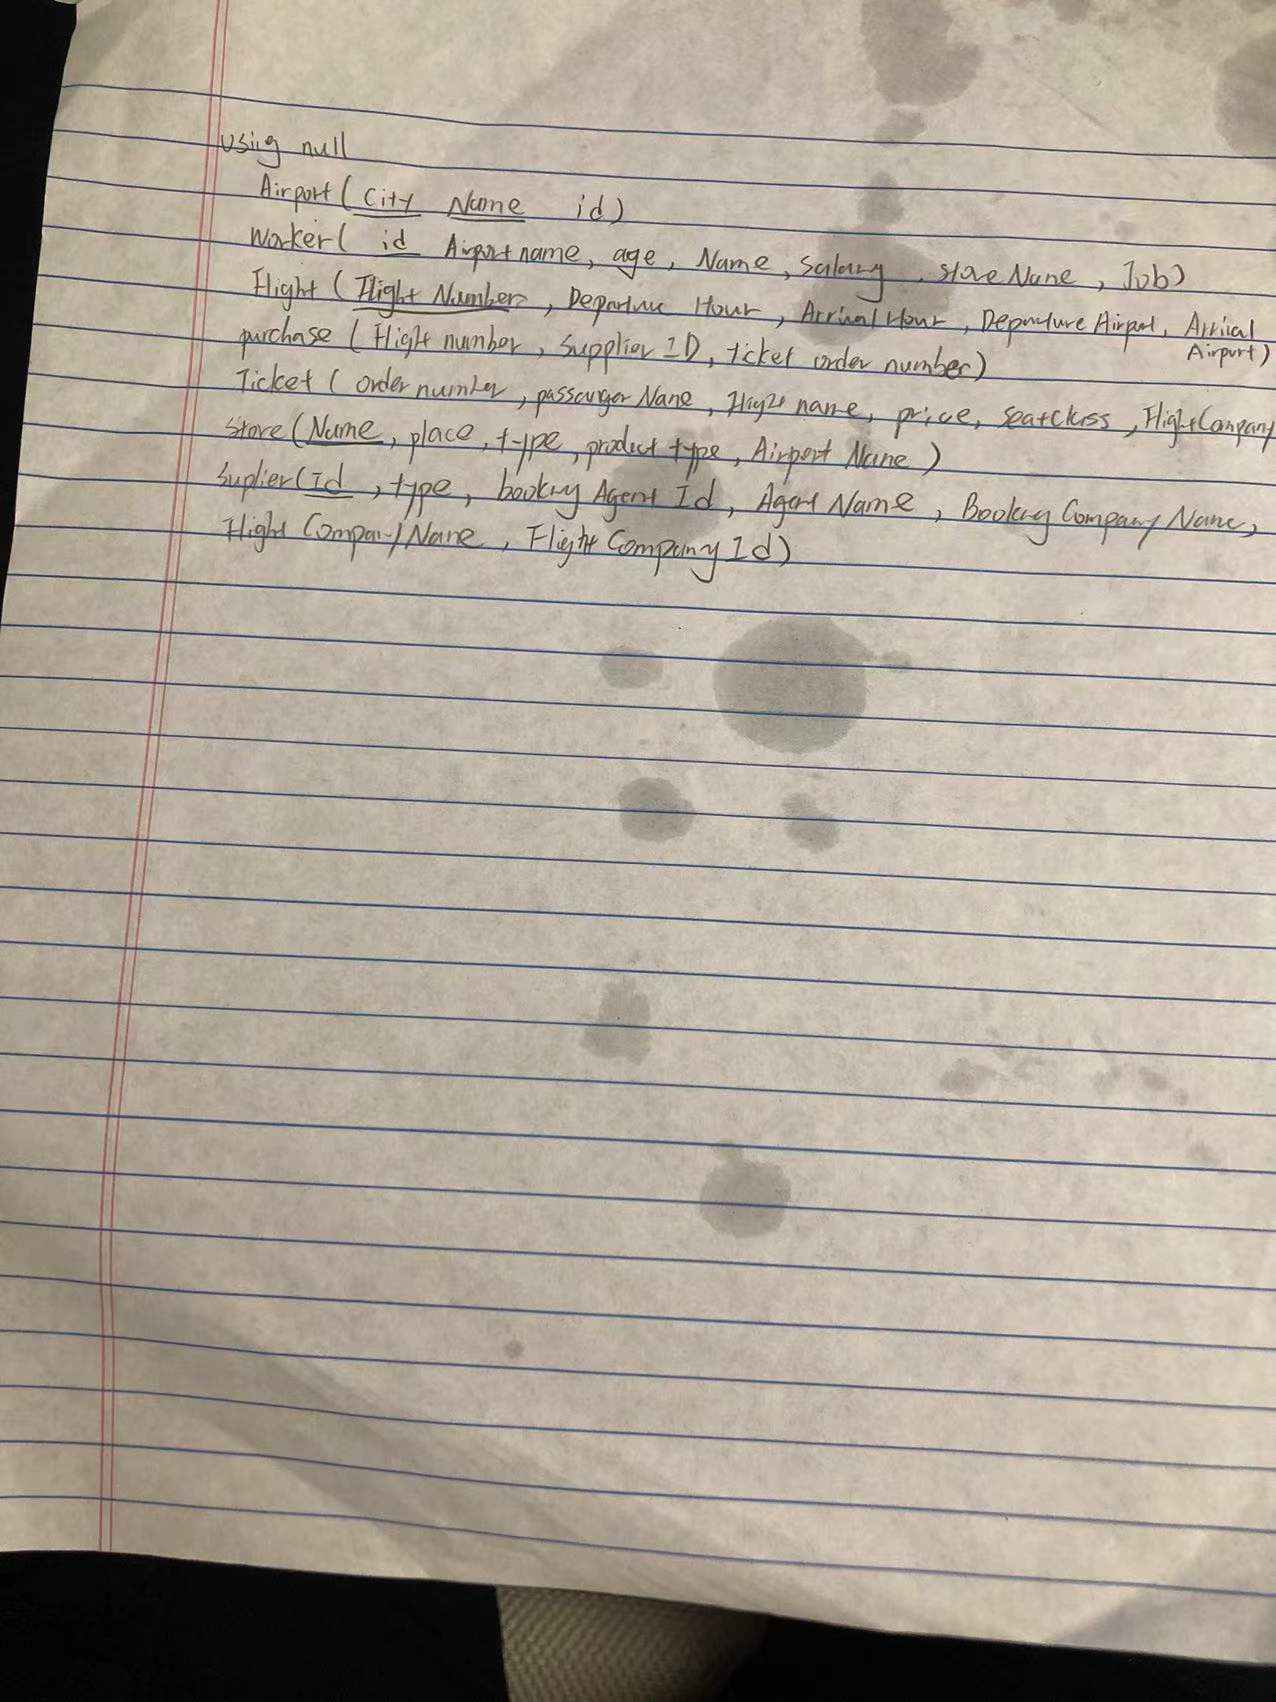 Using null
Airport (City Name id)
Worker( id Airport name, age, Name, salary, store Name, Job)
Flight (Flight Number, Departure Hour, Arrival Hour, Departure Airport, Arrival
Airport)
purchase (Flight number, Supplier ID, ticket order number)
Ticket ( order number, passanger Name, Flight name, price, seatclass, FlightCompany
Store (Name, place, type, product type, Airport Name)
Suplier(id, type, booking Agent Id, Agent Name, Booking Company Name,
Flight Company Name, Flight Company Id)